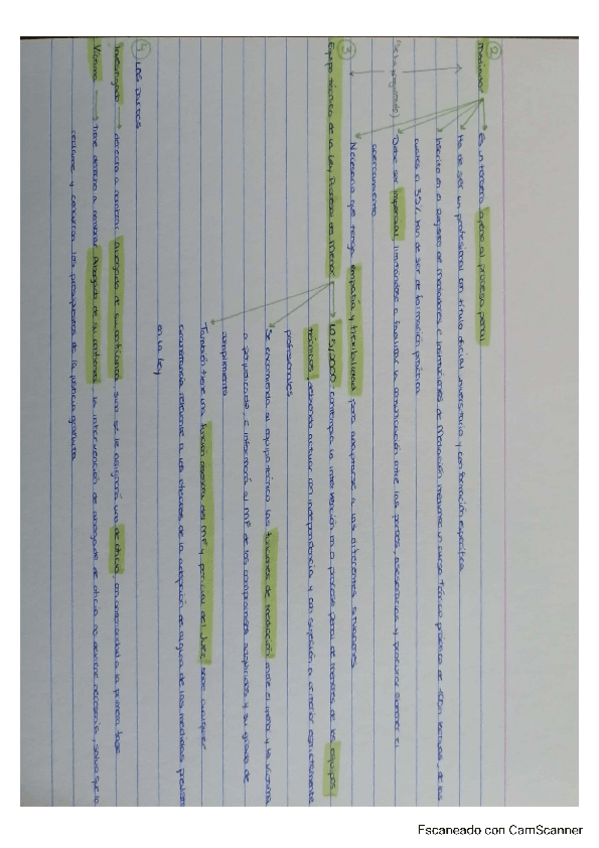 ② Mediador → Es un tercero ajeno al proceso penal
Ha de ser un profesional con título oficial universitario y con formación específica
Inscrito en el Registro de mediadores e instituciones de Mediación mediante un curso Teórico práctico de 100h lectivas, de las
cuales a 35% han de ser de formación práctica
Debe ser imparcial, limitándose a facilitar la comunicación entre las partes, asesorarlas y procurar
acercamiento
Necesario que tenga empatía y flexibilidad para adaptarse a las diferentes situaciones
③ Equipo técnico de la Ley Procesal de menor → LO 5/2000 contempla la intervención en el proceso penal de menores de los equipos
técnicos, debiendo actuar con independencia y con sujeción a criterios estrictamente
profesionales
Se encomienda al equipo técnico las funciones de mediación entre el menor y la víctima
o perjudicado, e informará al MF de los compromisos adquiridos y su grado de
cumplimiento
También tiene una función asesora del MF y pericial del Juez, sobre cualquier
circunstancia relevante a los efectos de la adopción de alguna de las medidas previstas
en la ley
④ LAS PARTES
Investigado → derecho a nombrar abogado de su confianza, sino se le asignará uno de oficio, con anterioridad a la primera fase
Víctima → Tiene derecho a nombrar Abogado de su confianza, la intervención de abogado de oficio no deviene necesaria, salvo que lo
reclame y concurran los presupuestos de la justicia gratuita
Escaneado con CamScanner